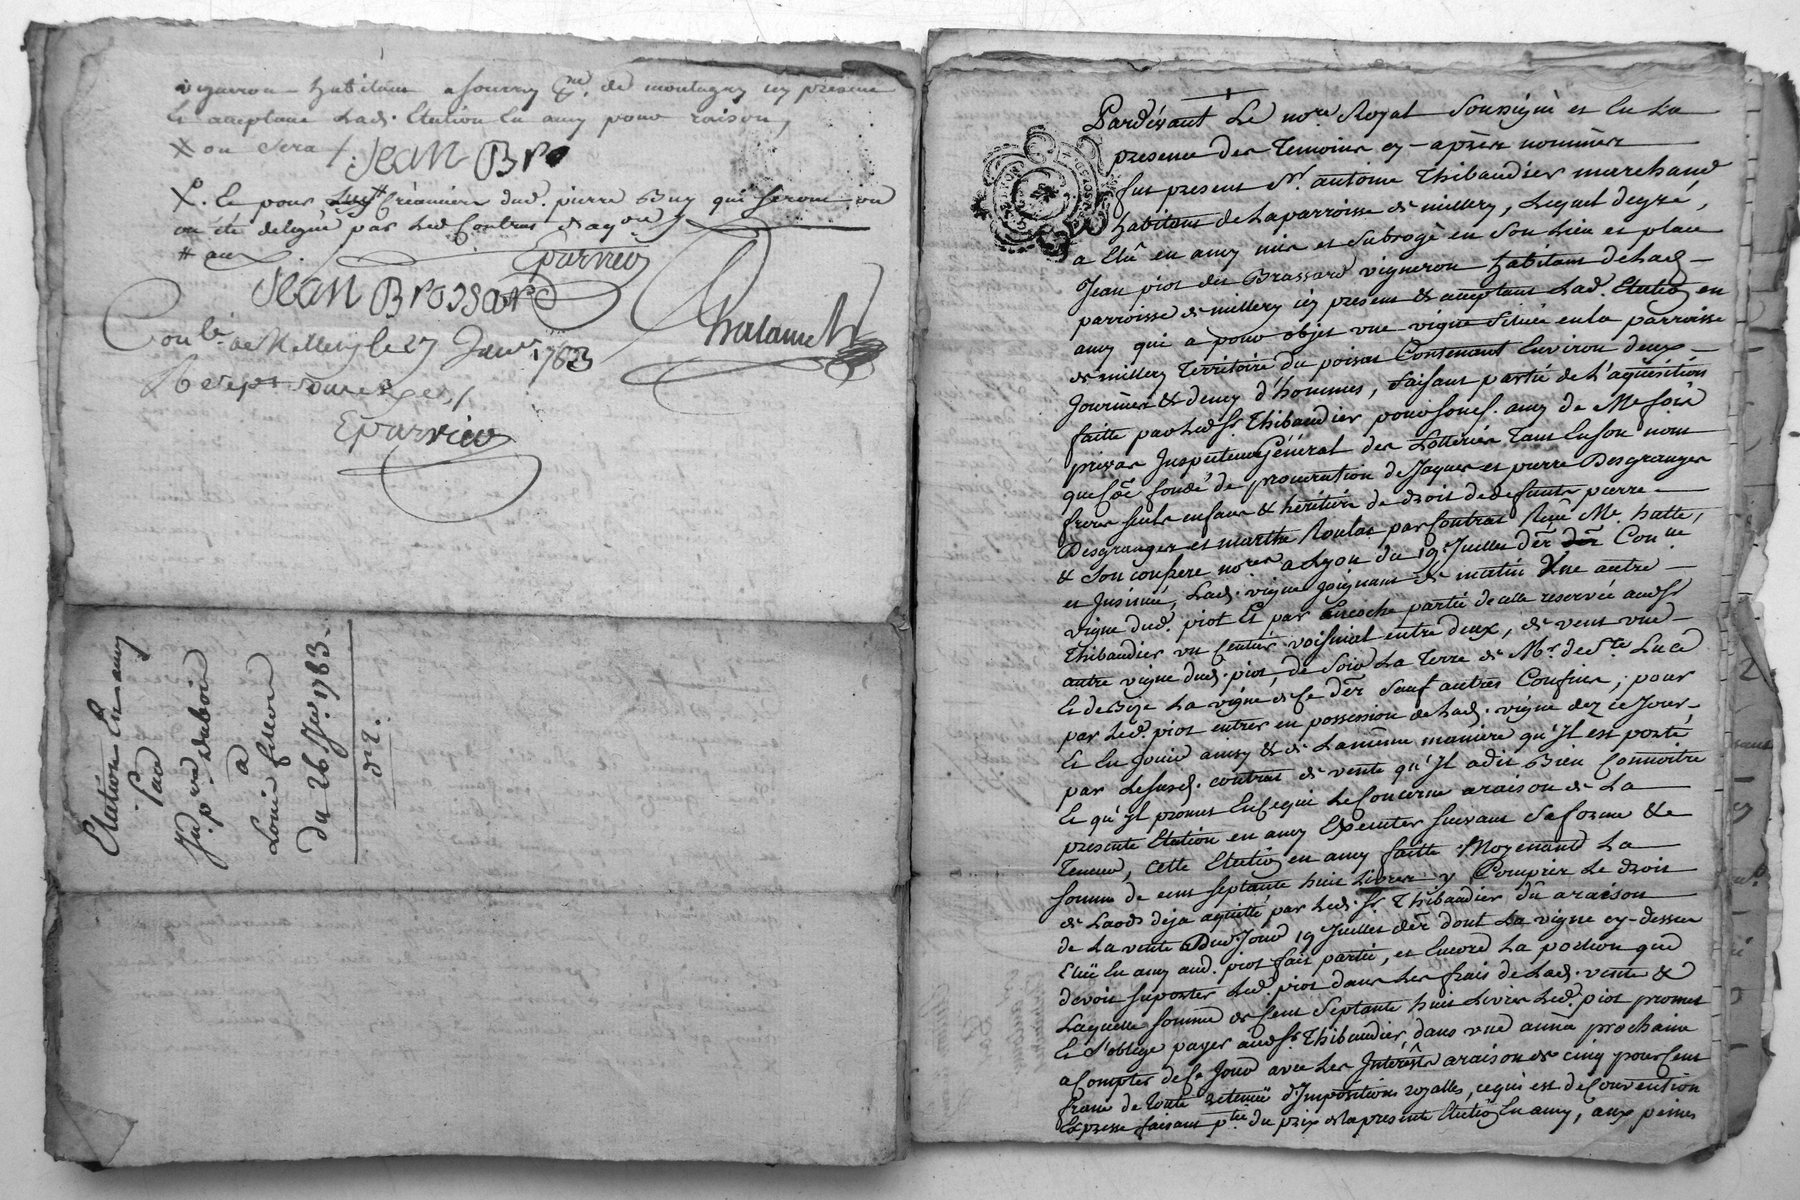 vigneron habitant a fourny de montagny icy present
et acceptant Lad. Election En amy pour raison,
X ou sera /. Jean Bro
X. Et pour Creanciers dud. pierre Buy qui seront ou
on été delegué par Led Contrat
# aux
Eparvier
Jean Brossard
Chatanet
Conlé. a Millery le 27 Janer. 1783
Reçu
Eparvier
Elextion En amy
Par
Jn. pre. Dubois
a
Louis fillon
Du 26 Jer. 1783.
Pardevant Le nore. Royal Soussigné et En La
presence des Temoins cy-après nommés
fut present Sr. antoine Thibaudier marchand
habitant de La parroisse de millery, Lequel de gré,
a Elû en amy mis et subrogé en Son Lieu et place
Jean piot dit Brassard vigneron habitant de Lad.
parroisse de millery icy present & acceptant Lad. Election en
amy qui a pour objet une vigne Située en la parroisse
de millery Territoire du poirat Contenant Environ deux
Journées & demy d'hommes, faisant partie de L'aquisition
faitte par Led Sr. Thibaudier de
privas Inspecteur Général des Lotteries Tant En son nom
que Côe fondé de procuration de Jaques et pierre Desgranges
freres seuls enfans & héritiers de droit de defunts pierre
Desgranges et marthe Roulat par Contrat Reçu Me. hatte,
& Son confrere nores a Lyon du 19 Juillet dèr Conlle
et Insinué, Lad. vigne Joignant de matin Une autre
vigne dud. piot Et par Encoche partie de celle reservée aud Sr
Thibaudier un sentier voisinal entre deux, de vent une
autre vigne dud. piot, de Soir La Terre de Mr. de Ste. Luce
Et de Bize La vigne de Ce dèr Sauf autres Confins; pour
par Led. piot entrer en possession de Lad. vigne dez ce Jour
Et En Jouir ainsy & de La même maniere qu'Il est porté
par Le susd. contrat de vente qu'Il a dit Bien Connoitre
Et qu'Il promet En ce qui Le Concerne a raison de La
presente Election en amy Executer suivant Sa forme &
Teneur, Cette Election en amy faitte Moyenant La
somme de cent septante huit Livres y Compris Le droit
de Laods deja aquitté par Led. Sr. Thibaudier dû a raison
de La vente Dud Jour 19 Juillet dèr dont La vigne cy-dessus
Eluë En amy aud. piot fait partie, et Encore La portion que
devoit suporter Led. piot dans Les frais de Lad. vente &
Laquelle somme de Cent Septante huit Livres Led. piot promet
Et s'oblige payer aud Sr Thibaudier, dans une année prochaine
a Compter de Ce Jour avec Les Interêts a raison de cinq pour Cent
franc de toute retenuë d'Impositions royalles, ce qui est de Convention
Expresse faisant ptie du prix de la presente Election En amy, aux peines